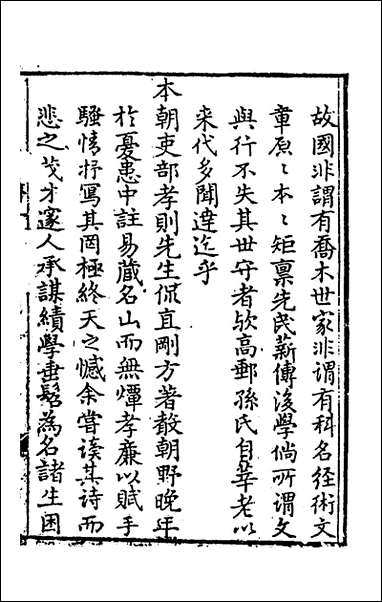 故國非謂有喬木世家非謂有科名經術文
章原〻本〻矩禀先民薪傳後學倘所謂文
與行不失其世守者欤高郵孫氏自莘老以
来代多聞達迄乎
本朝吏部孝則先生侃直剛方著聲朝野晚年
於憂患中註易蔵名山而無燀孝廉以賦手
騷情抒寫其罔極終天之憾余嘗读其诗而
悲之茂才邃人承謀績學垂髫為名諸生困